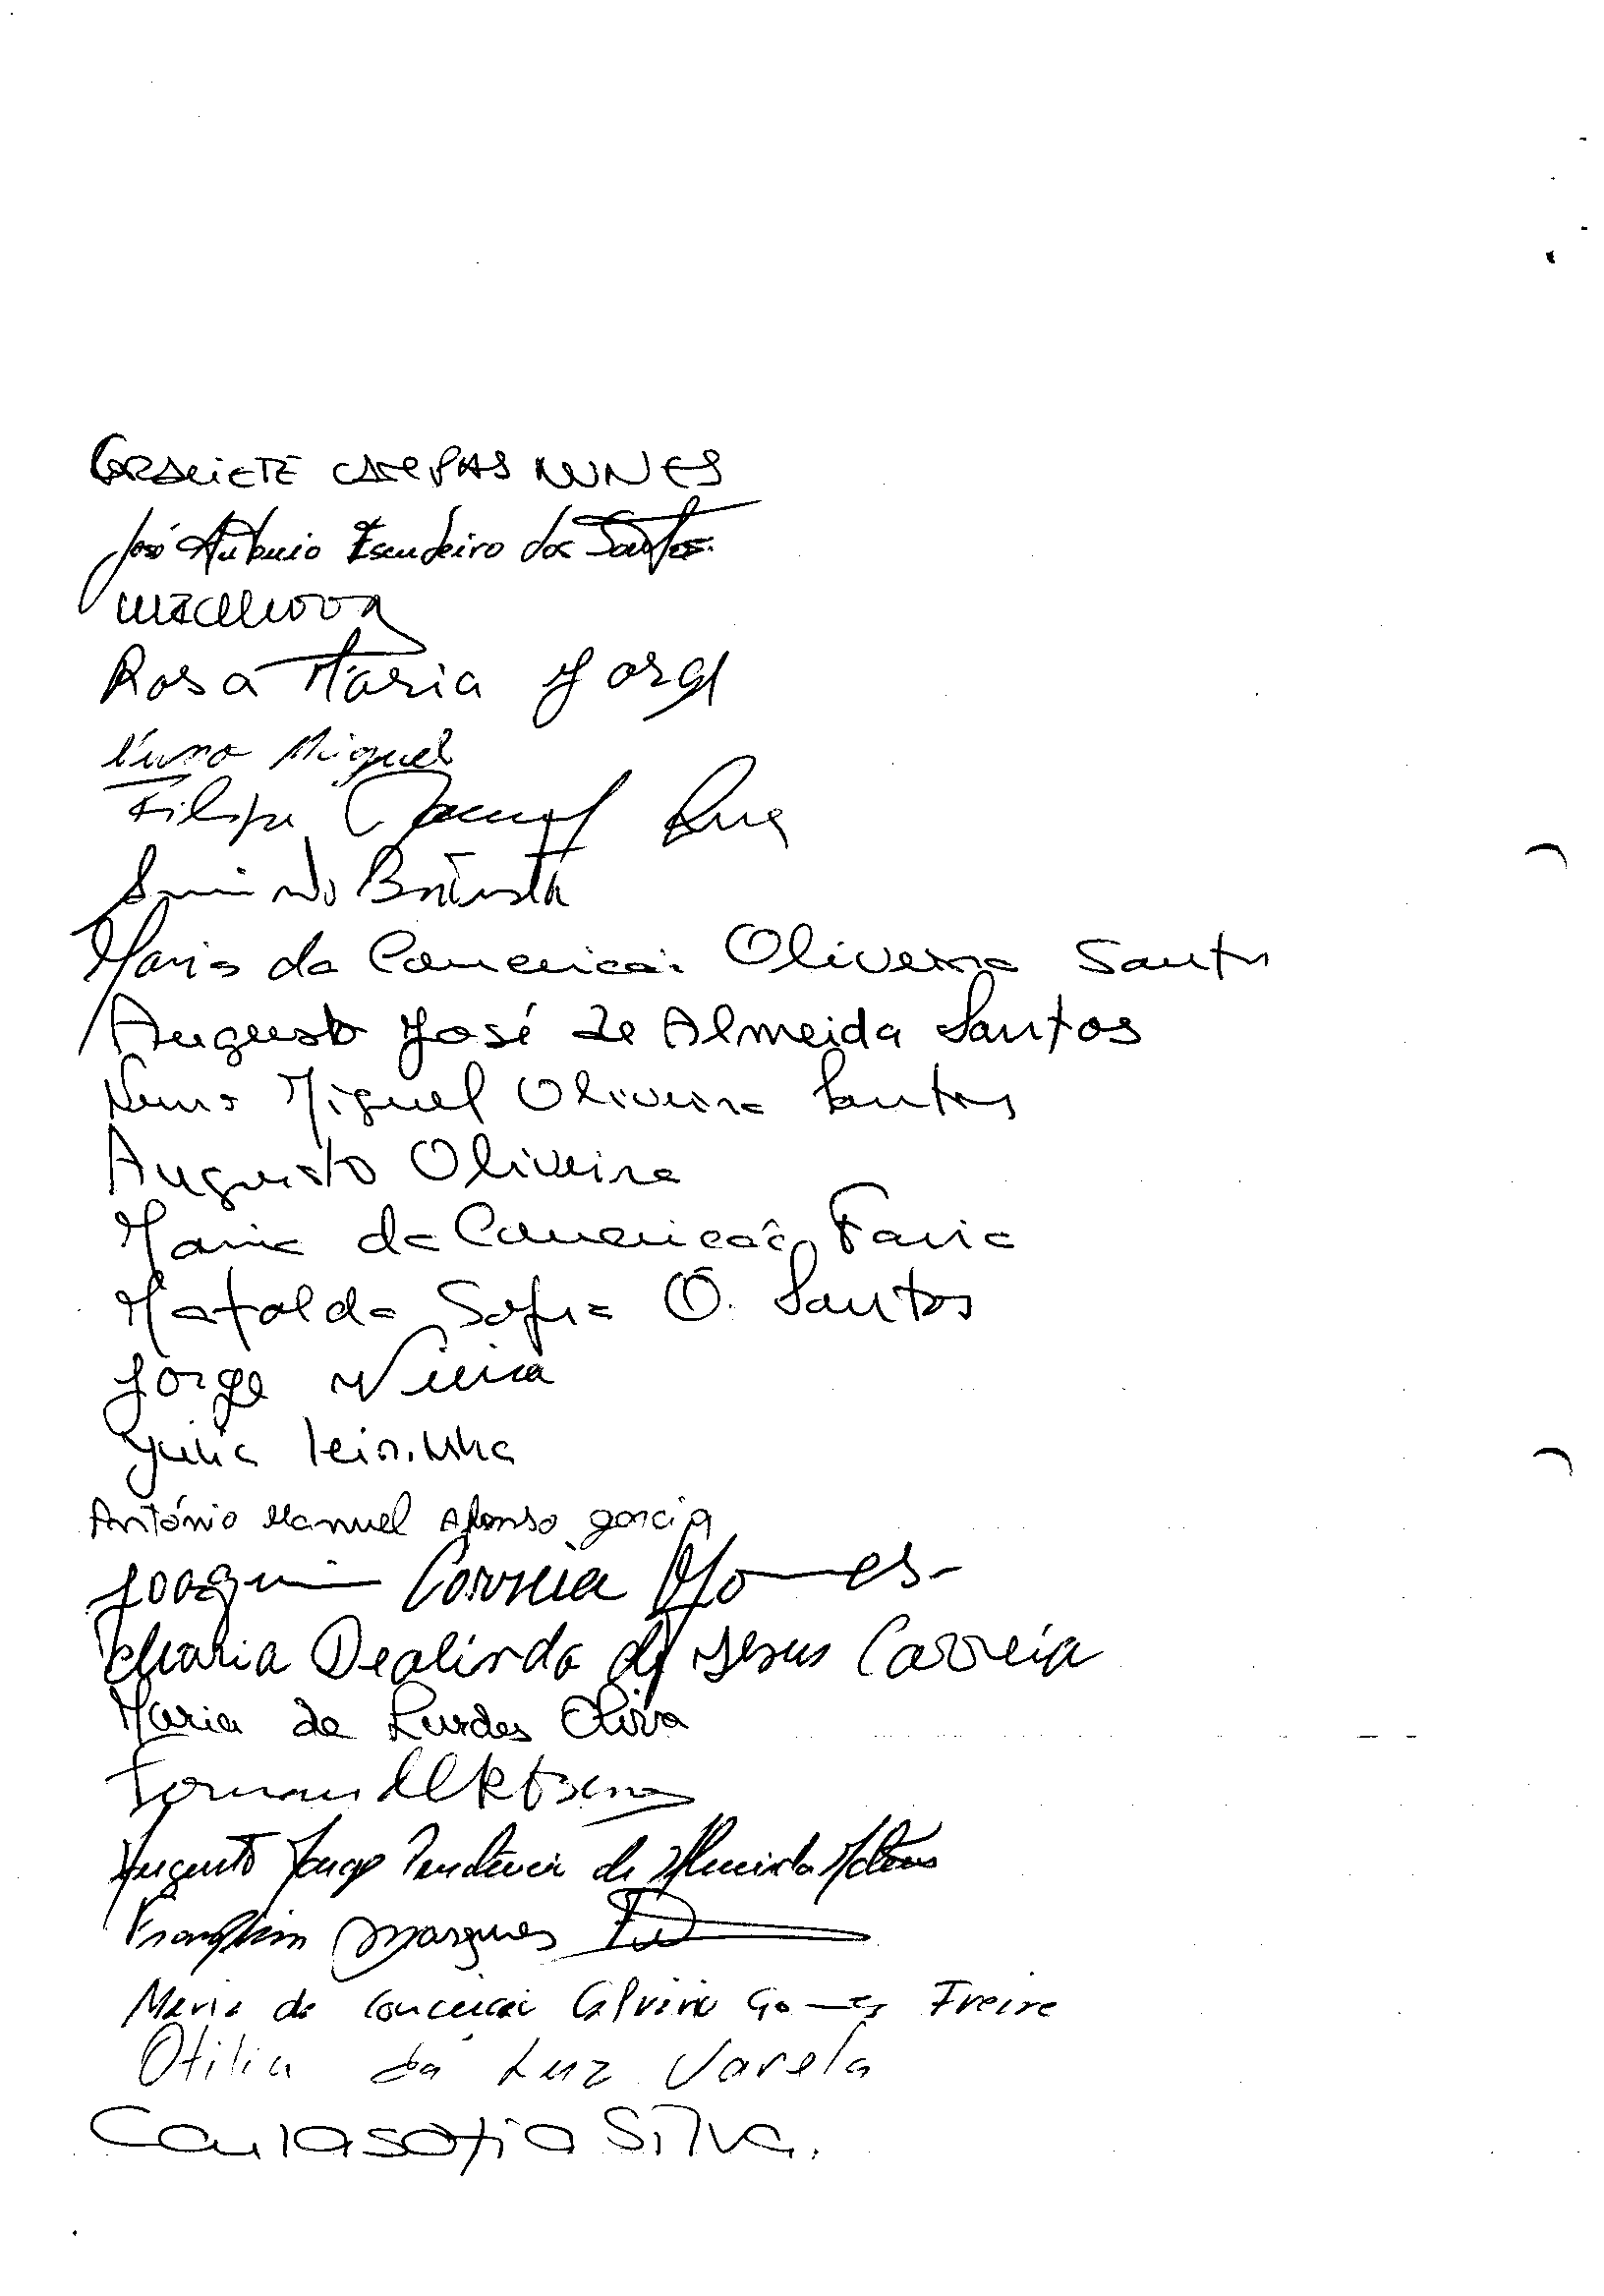 NUNES
José António Escudeiro dos Santos.
Rosa Maria Jorge
Nuno Miguel
Filipe Rua
Batista
Maria da Conceição Oliveira Santos
Augusto José de Almeida Santos
Nuno Miguel Oliveira Santos
Augusto Oliveira
Maria da Conceicão Faria
Mafalda Sofia O. Santos
Jorge Vieira
Julia
António Manuel Afonso garcia
Joaquim Correia Gomes
Maria Dealinda de Jesus Correia
Maria de Lurdes Oliva
Augusto Jorge de Almeida
Franklin Marques
Maria da Conceição Gomes Freire
Otilia da Luz Varela
Carla sofia Silva.